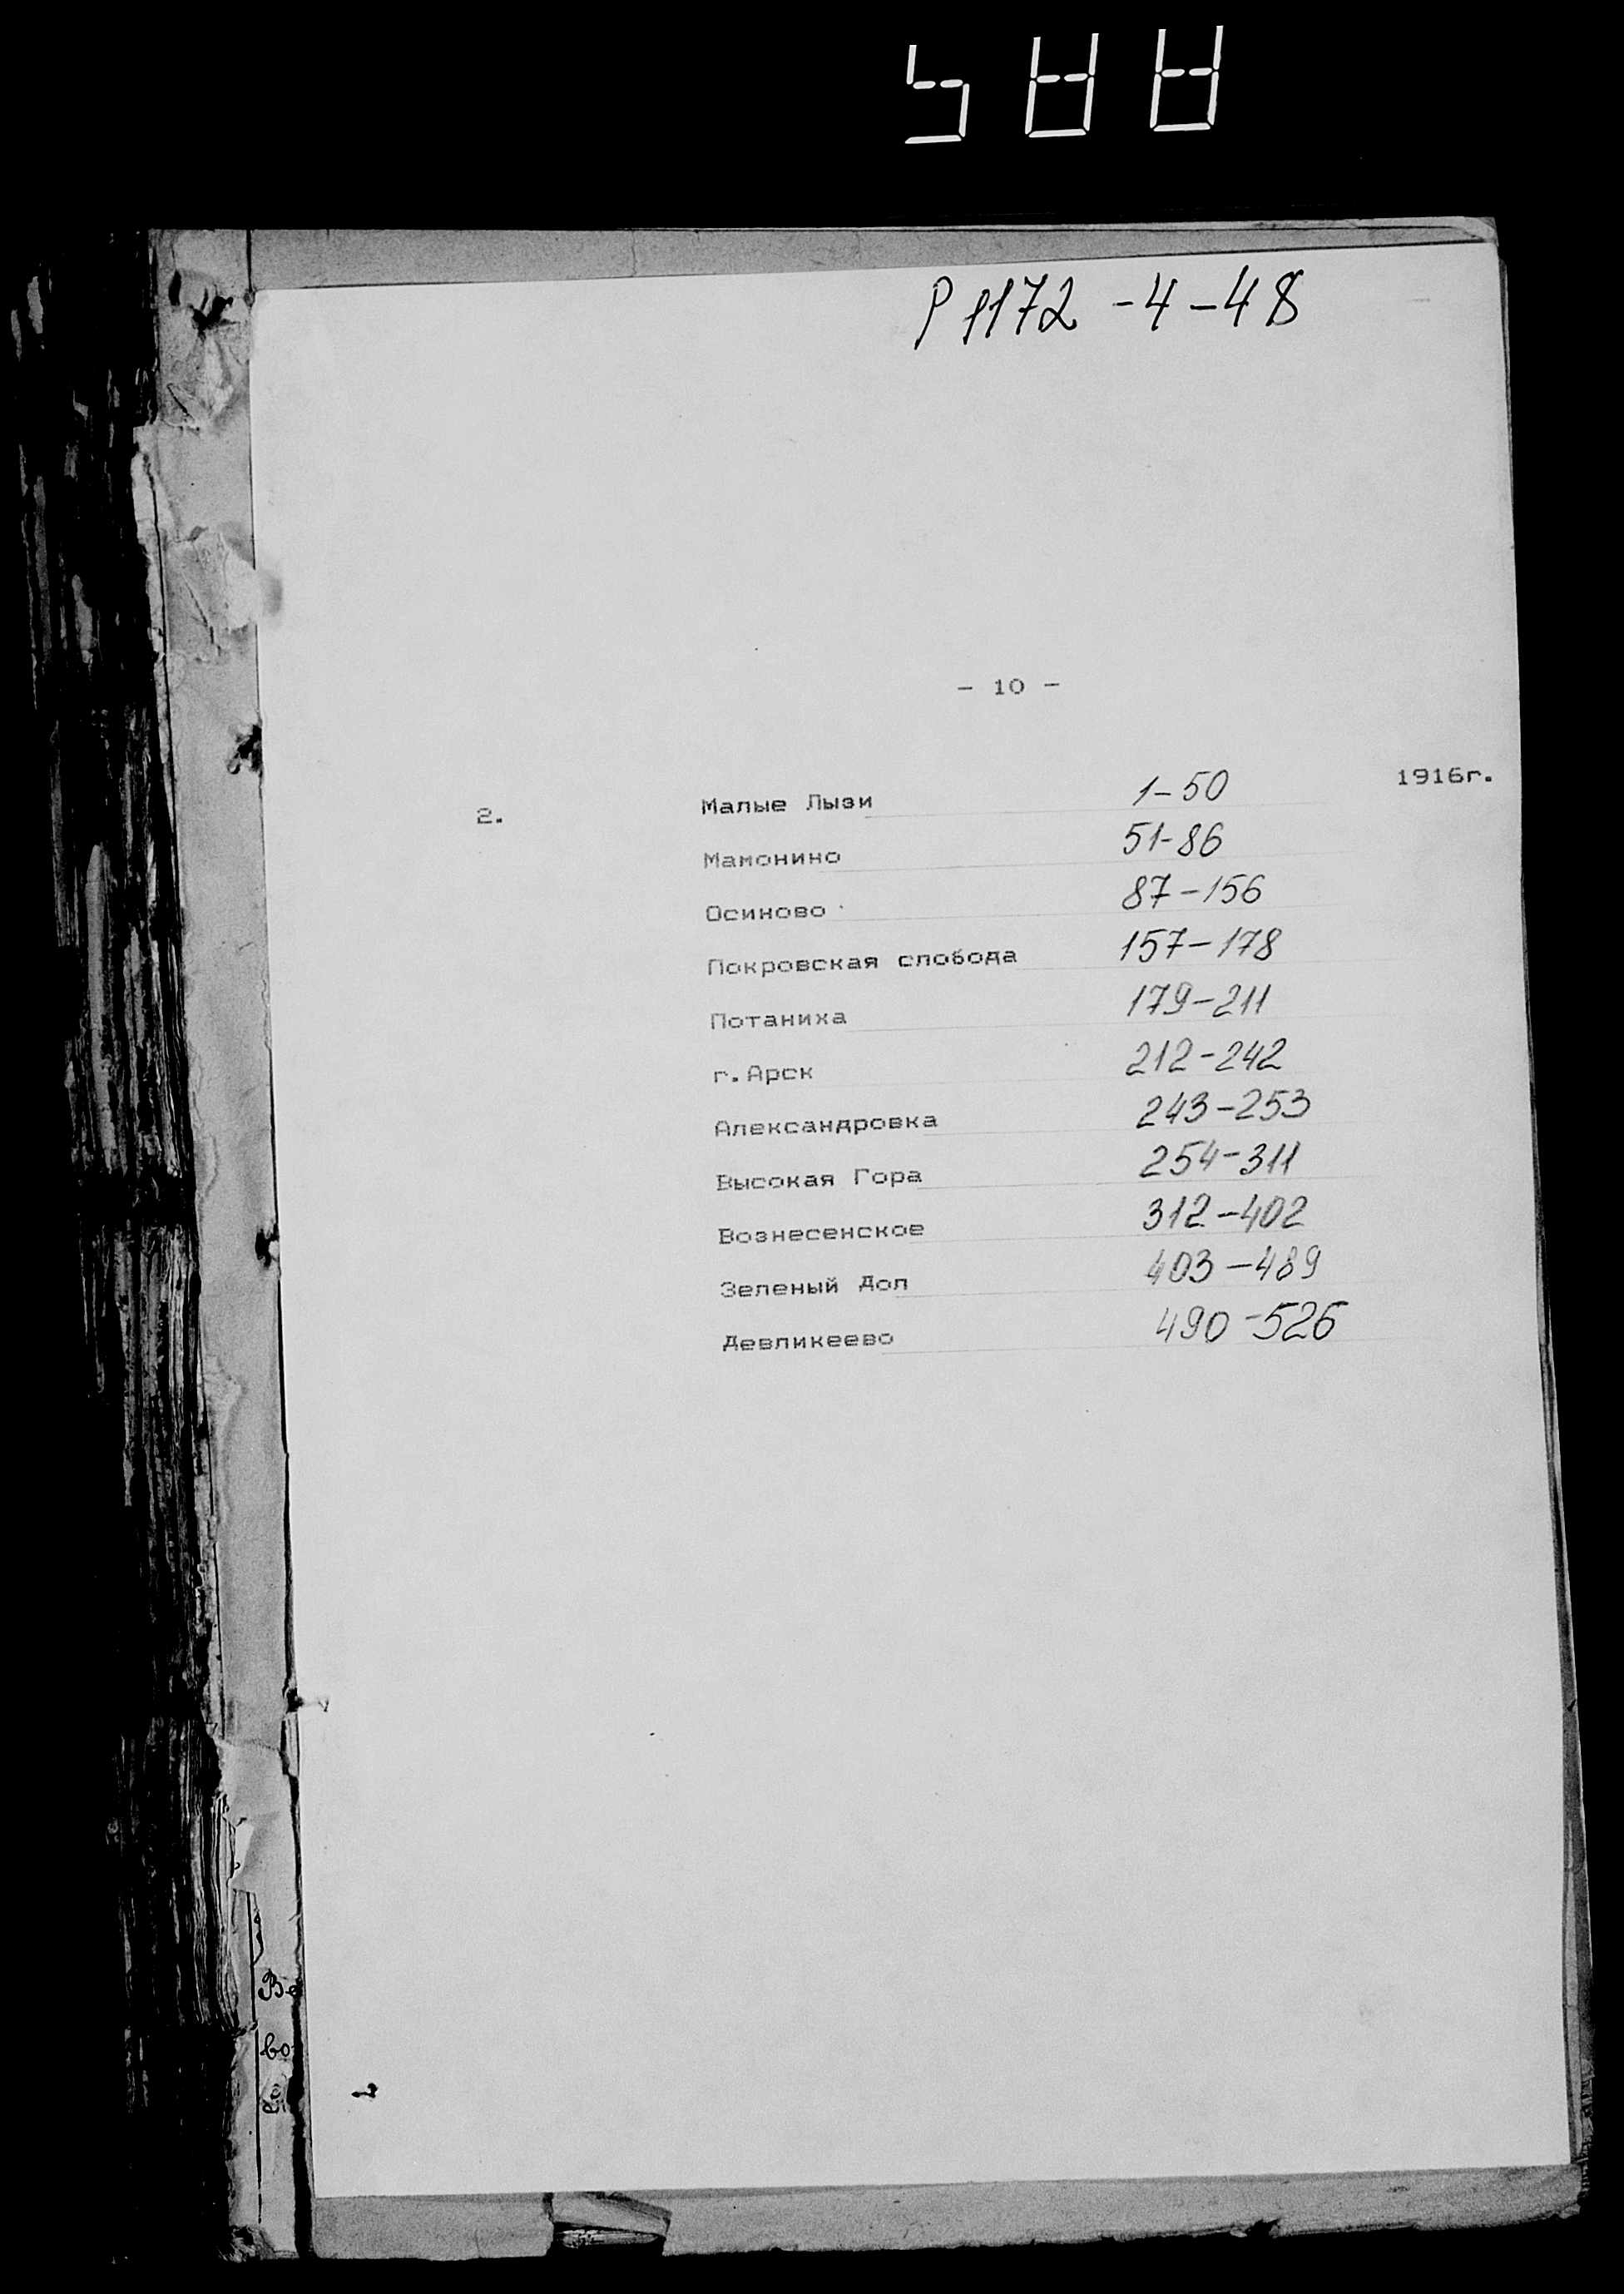 Р 1172 -4-48
- 10 -
2. Малые Лызи 1-50 1916г.
Мамонино 51-86
Осиново 87-156
Покровская слобода 157-178
Потаниха 179-211
г.Арск 212-242
Александровка 243-253
Высокая Гора 254-311
Вознесенское 312-402
Зеленый Дол 403-489
Девликеево 490-526